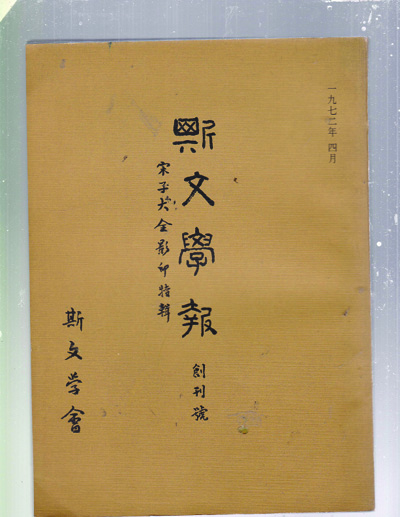 一九七二年 四月
斯文學報
創刊號
宋子大全影印特輯
斯文学會